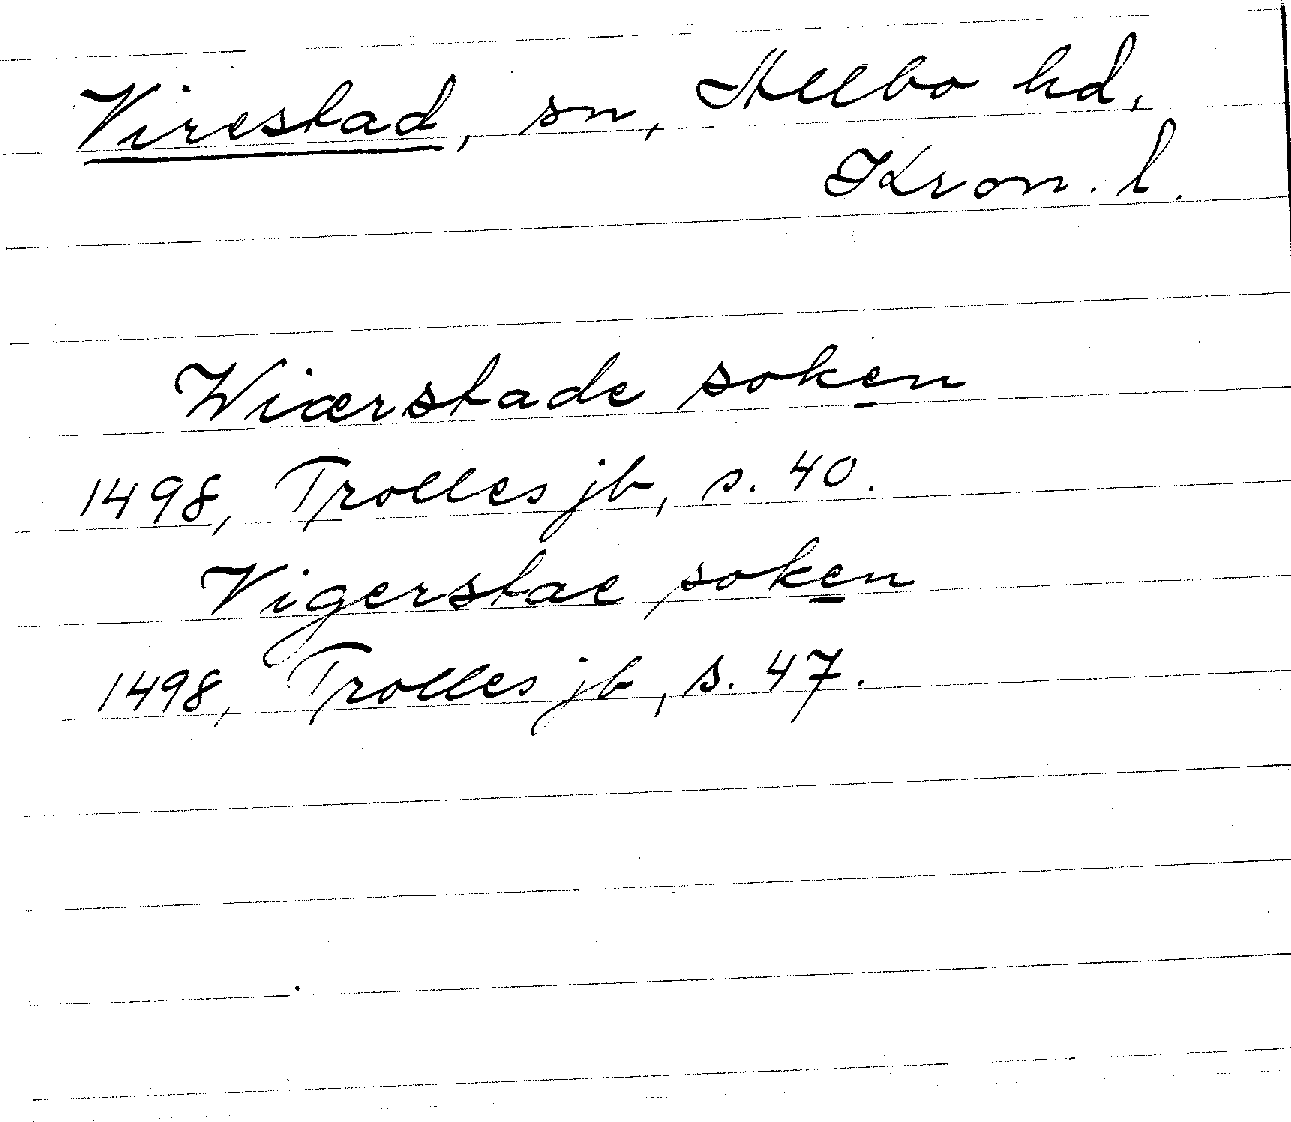 Virestad, sn, Allbo hd,
Kron. l.
Wiærstade soken
1498, Trolles jb, s. 40.
Vigerstae soken
1498, Trolles jb, s. 47.